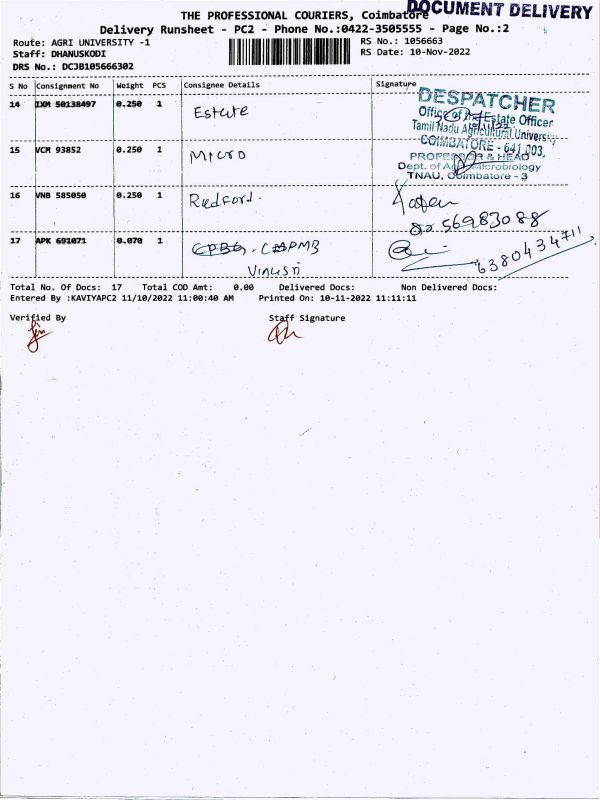 DOCUMENT DELIVERY
THE PROFESSIONAL COURIERS, Coimbatore
Delivery Runsheet - PC2 - Phone No.:0422-3505555 - Page No.:2
Route: AGRI UNIVERSITY -1
RS No.: 1056663
Staff: DHANUSKODI
RS Date: 10-Nov-2022
DRS No.: DCJB105666302
S No Consignment No Weight PCS Consignee Details Signature
14 IXM 50138497 0.250 1 Estate
DESPATCHER
Office of the Estate Officer
Tamil Nadu Agricultural University
COIMBATORE - 641 003.
15 VCM 93852 0.250 1 Micro
PROFESSOR & HEAD
Dept. of Agrl. Microbiology
TNAU, Coimbatore - 3
16 VNB 585050 0.250 1 Redford.
8056983088
17 APK 691071 0.070 1 CPBG. CPMB
6380434711
Total No. Of Docs: 17 Total COD Amt: 0.00 Delivered Docs: Non Delivered Docs:
Entered By :KAVIYAPC2 11/10/2022 11:00:40 AM Printed On: 10-11-2022 11:11:11
Verified By Staff Signature